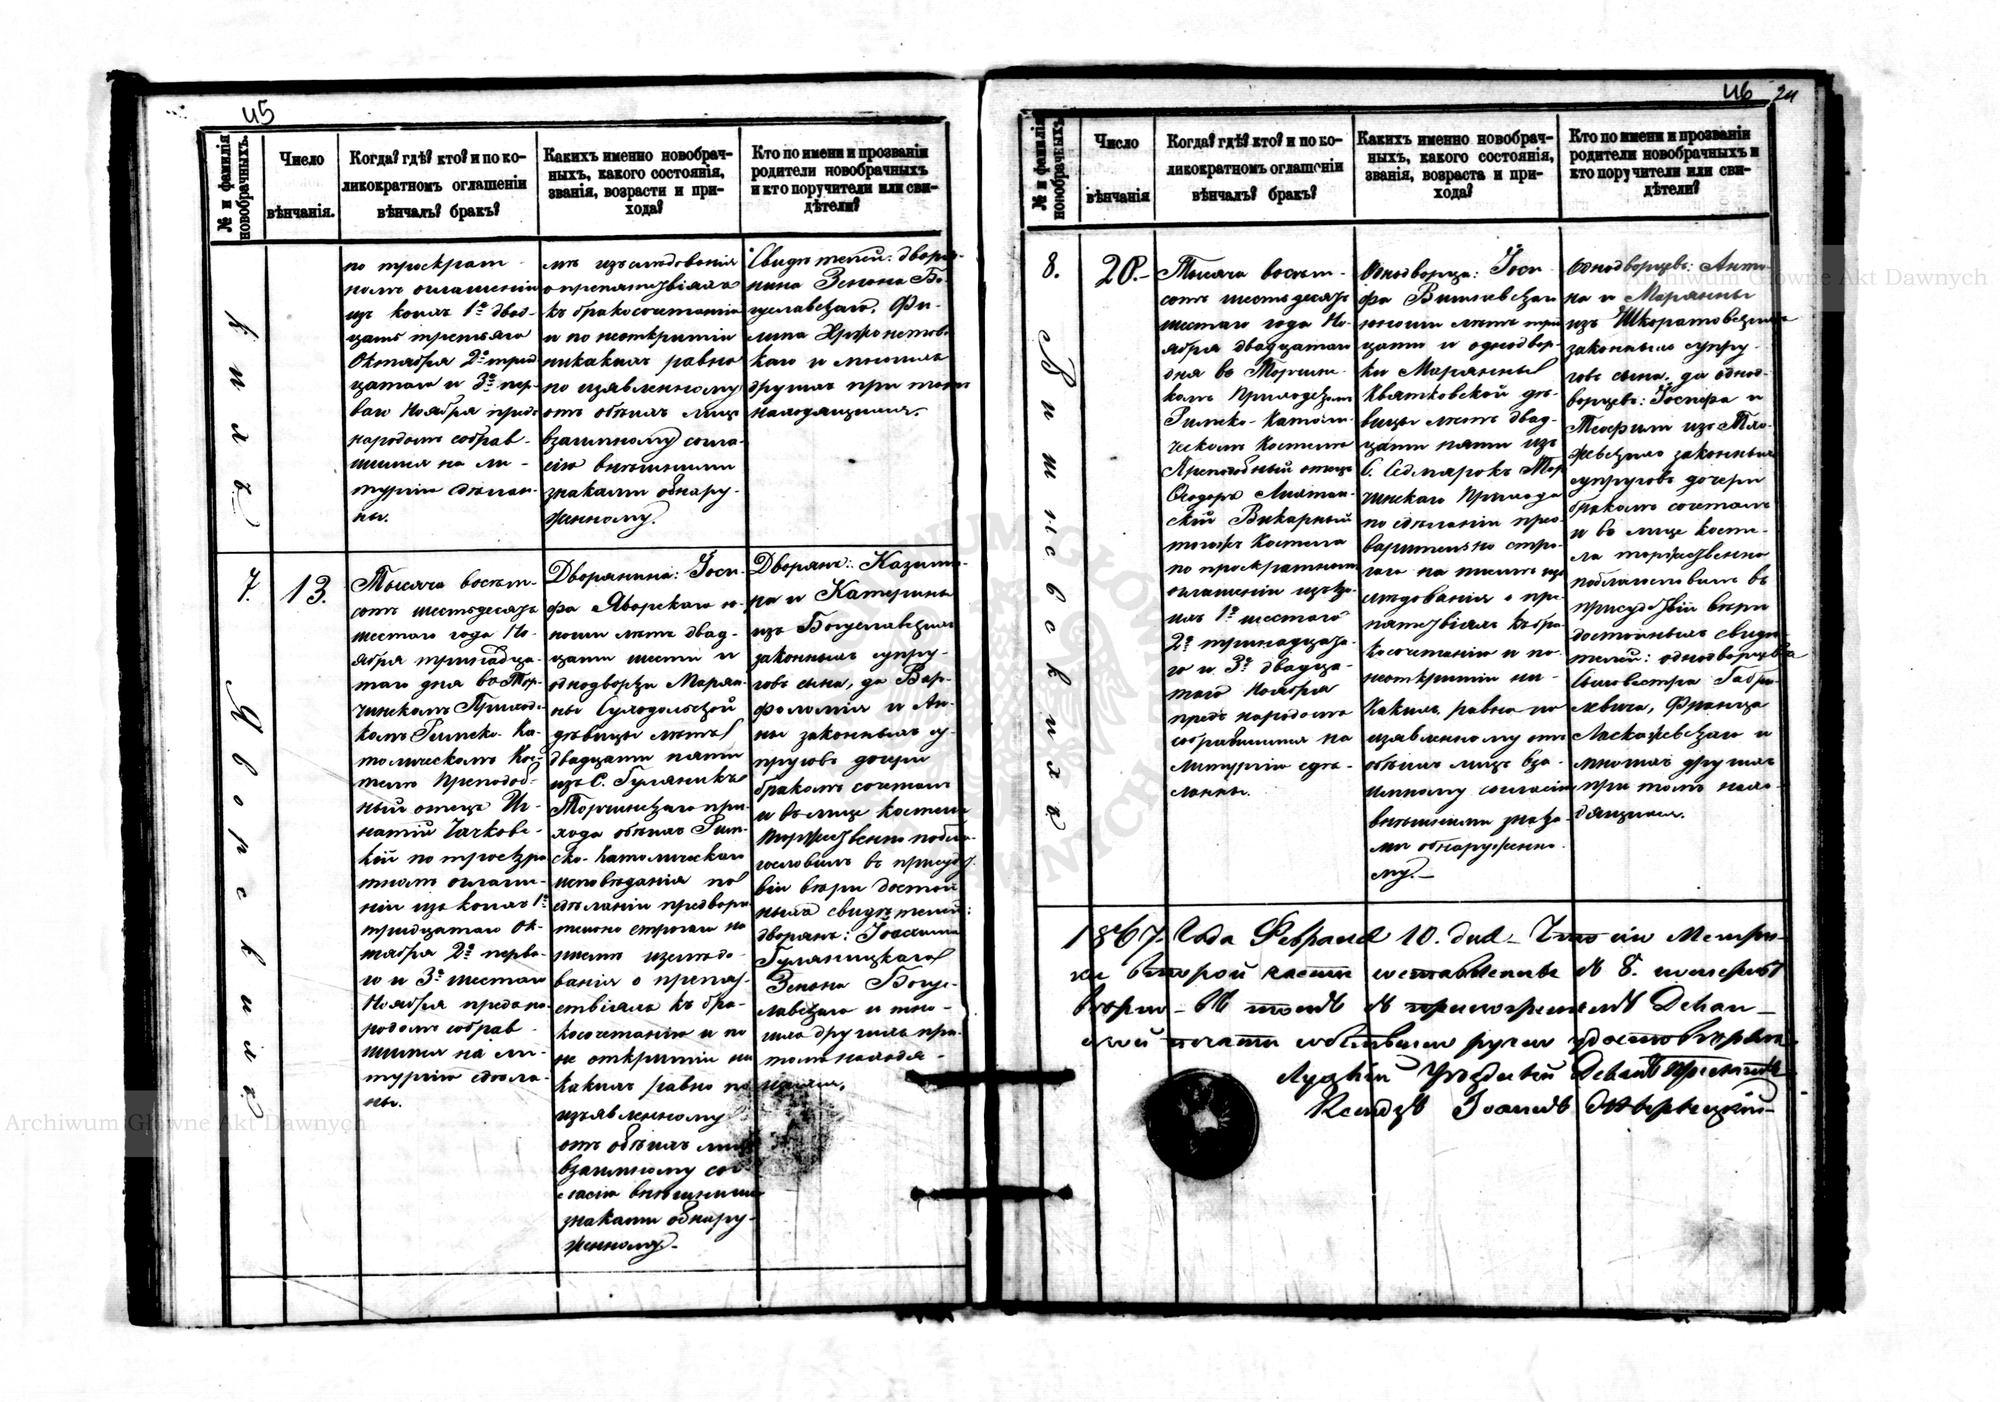 45
№ и фамилія новобрачныхъ.
Число вѣнчанія.
Когда? гдѣ? кто? и по ко-
ликократномъ оглашеніи
вѣнчалъ? бракъ?
Каихъ именно новобрач-
ныхъ, какого состоянія,
званія, возрасти и при-
хода?
Кто по имени и прозванію
родители новобрачныхъ
и кто поручители или сви-
дѣтели?
кихъ
по троекрат-
номъ оглашеніи
изъ коихъ 1º двад-
цать третьяго
Октября 2º трид
цатаго и 3º пер-
ваго Ноября предъ
народомъ собрав-
шимся на ли-
тургію сдѣлан-
ны.
изъслѣдованія
о препятствіяхъ
къ бракосочетанію
и по неоткрытіи
никакихъ равно
по изявленному
отъ обѣихъ лицъ
взаимному согла-
сію внѣшними
знаками обнару-
женному.
Свидѣтелей: дворя-
нина Зенона Бо-
гуславскаго, Фи-
липа
каго и многихъ
другихъ при томъ
находящихся.
7.
Яворскихъ
13.
Тысяча восѣм-
сотъ шестьдесятъ
шестаго года Но-
ября тринадца-
таго дня въ Тор-
чинскомъ Приход-
комъ Римско-Ка-
толическомъ Кос-
телѣ Преподоб-
ный отецъ Иг-
натій Чачков-
кій по троекра
тномъ оглаше-
ніи изъ коихъ 1º
тридцатаго Ок-
тября 2º перва-
го и 3º шестаго
Ноября предъ на-
родомъ собрав-
шимся на ли-
тургію сдѣла-
ны.
Дворянина: Іоси-
фа Яворскаго ю-
ноши лѣтъ двад-
цати шести и
однодворки Марiан-
ны Суходольской
дѣвицы лѣтъ
двадцати пяти
изъ С. Гуляникъ
Торчинскаго при-
хода обѣихъ Рим-
ско-Католическаго
исповѣданія по
сдѣланіи предвари
тельно строгаго на
письмѣ изслѣдо-
ванія о препят-
ствіяхъ къ бра-
косочетанію и по
не открытіи ни
какихъ равно по
изъявленному
отъ обѣихъ лицъ
взаимному сог-
ласію внѣшними
знаками обнару-
женному.
Дворянъ: Казими-
ра и Катерины
изъ Богуславскихъ
законныхъ супру-
говъ сына, да Вар-
фоломія и Ан-
ны законныхъ су-
пруговъ дочери
бракомъ сочеталъ
и въ лицѣ костела
торжественно побла-
гословилъ въ присудст-
віи вѣры достой
ныхъ свидѣтелей:
дворянъ: Іоахима
Гуляницкаго
Зенона Богус-
лавскаго и мно-
гихъ другихъ при
томъ находя-
щихся.
46 24
№ и фамилія новобрачныхъ.
Число вѣнчанія
Когда? гдѣ? кто? и по ко-
ликократномъ оглашеніи
вѣнчалъ? бракъ?
Какихъ именно новобрач-
ныхъ, какого состоянія,
званія, возраста и при-
хода?
Кто по имени и прозваніи
родители новобрачныхъ и
кто поручители или сви-
дѣтели?
8.
Вишневскихъ
20.
Тысяча восѣм-
сотъ шестьдесятъ
шестаго года Но-
ября двадцатаго
дня въ Торчин-
комъ Приходскомъ
Римско-Католи-
ческомъ Костелѣ
Преподобный отецъ
Ѳеодоръ
скій Викарный
тогожъ Костела
по троекратномъ
оглашеніи изъ ко-
ихъ 1º шестаго
2º тринадцата-
го и 3º двадца-
таго Ноября
предъ народомъ
собравшимся на
Литургію сдѣ-
ланны.
Однодворца: Іоси-
фа Вишневскаго
юноши лѣтъ трид
цати и однодвор-
ки Марiанны
Квятковской дѣ-
вицы лѣтъ двад-
цати пяти изъ
С. Седмярокъ Тор
чинскаго Прихода
по сдѣланіи пред-
варительно стро-
гаго на письмѣ из-
слѣдованія о пре-
пятствіяхъ къ бра-
косочетанію и по-
неоткрытіи ни-
какихъ равно по
изявленному отъ
обѣихъ лицъ вза-
имному согласію
внѣшними знака-
ми обнаруженно-
му.
Однодворцевъ: Анто-
на и Марiанны
изъ Шкоратовскихъ
законныхъ супру-
говъ сына, да однод-
ворцевъ: Іосифа и
Теофили изъ
законныхъ
супруговъ дочери
бракомъ сочеталъ
и въ лицѣ косте-
ла торжественно
поблагословилъ въ
присудствіи вѣры
достойныхъ свидѣ-
телей: однодворцевъ
Сильвестра Габри-
левича, Франца
Ласкажевскаго и
многихъ другихъ
при томъ нахо-
дящихся.
1867. Года Февраля 10. дня – Что сіи Метри-
ки второй части составлены въ 8. номерахъ
вѣрно – въ томъ съ приложеніемъ Декан-
ской печати собственно ручно удостовѣряю
Луцкій Уѣздный Деканъ
Ксендзъ Іоаннъ
Archiwum Główne Akt Dawnych
Archiwum Główne Akt Dawnych
ARCHIWUM GŁÓWNE AKT DAWNYCH